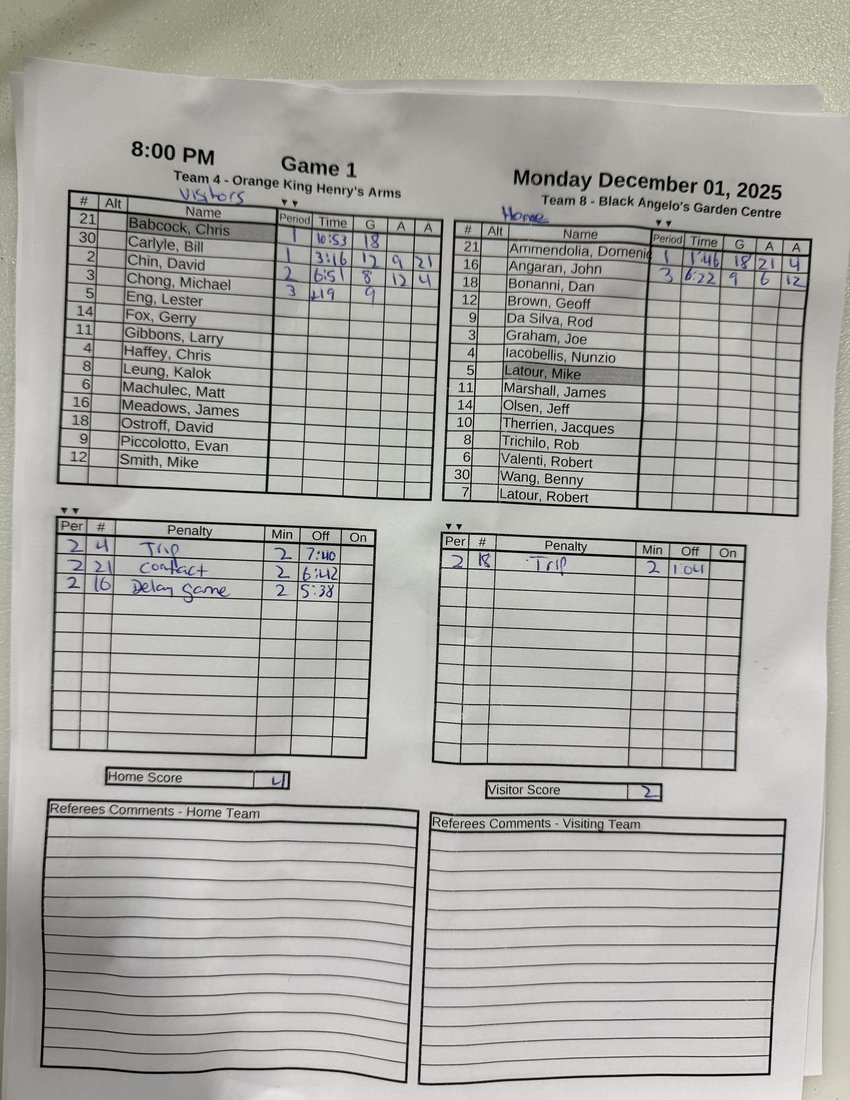 8:00 PM Game 1 Monday December 01, 2025
Team 4 - Orange King Henry's Arms
Visitors
# Alt Name Period Time G A A
21 Babcock, Chris 1 10:53 18
30 Carlyle, Bill 1 3:16 12 9 21
2 Chin, David 2 6:51 8 12 4
3 Chong, Michael 3 :19 9
5 Eng, Lester
14 Fox, Gerry
11 Gibbons, Larry
4 Haffey, Chris
8 Leung, Kalok
6 Machulec, Matt
16 Meadows, James
18 Ostroff, David
9 Piccolotto, Evan
12 Smith, Mike
Team 8 - Black Angelo's Garden Centre
Home
# Alt Name Period Time G A A
21 Ammendolia, Domenic 1 1:46 18 21 4
16 Angaran, John 3 6:22 9 6 12
18 Bonanni, Dan
12 Brown, Geoff
9 Da Silva, Rod
3 Graham, Joe
4 Iacobellis, Nunzio
5 Latour, Mike
11 Marshall, James
14 Olsen, Jeff
10 Therrien, Jacques
8 Trichilo, Rob
6 Valenti, Robert
30 Wang, Benny
7 Latour, Robert
Per # Penalty Min Off On
2 4 Trip 2 7:40
2 21 contact 2 6:42
2 16 Delay game 2 5:38
Per # Penalty Min Off On
2 18 Trip 2 1:04
Home Score 4
Visitor Score 2
Referees Comments - Home Team
Referees Comments - Visiting Team